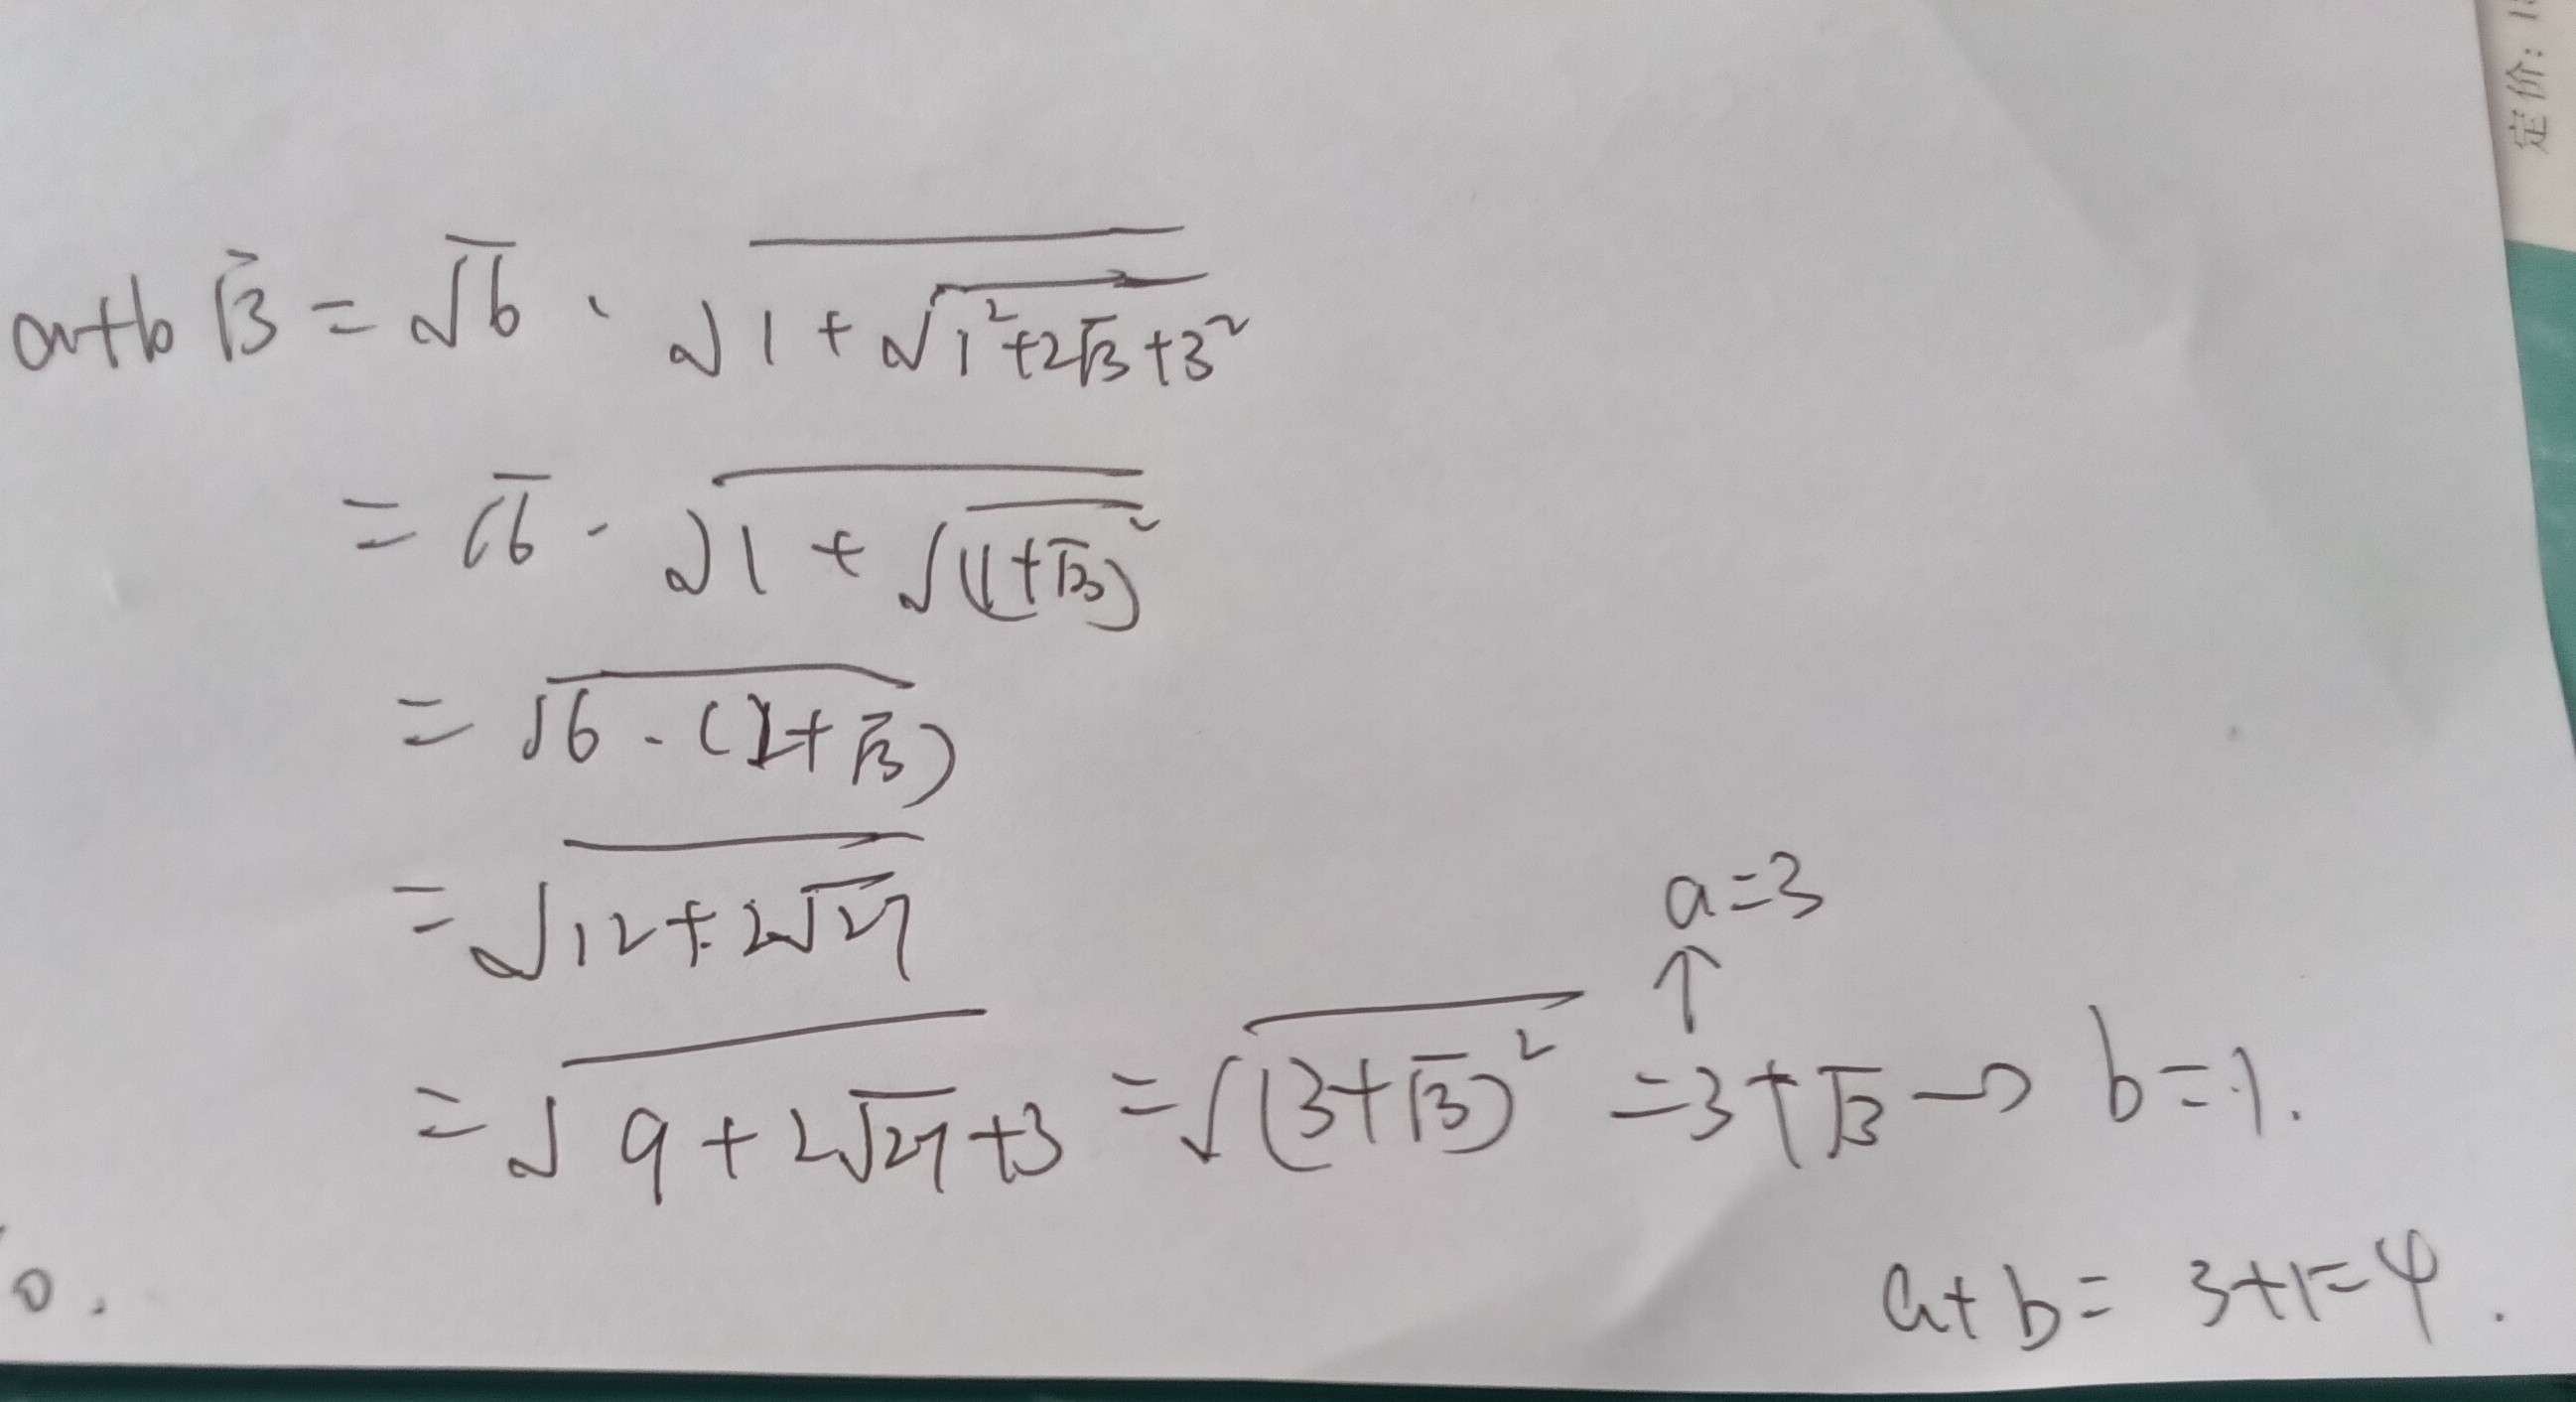 定价：1
a+b√3 = √6 · √(1 + √(1²+2√3+3²))
= √6 · √(1 + √((1+√3)²))
= √(6 · (2+√3))
= √(12+2√27)
a=3
↑
= √(9+2√27+3) = √((3+√3)²) = 3+√3 → b=1.
0.
a+b= 3+1=4.